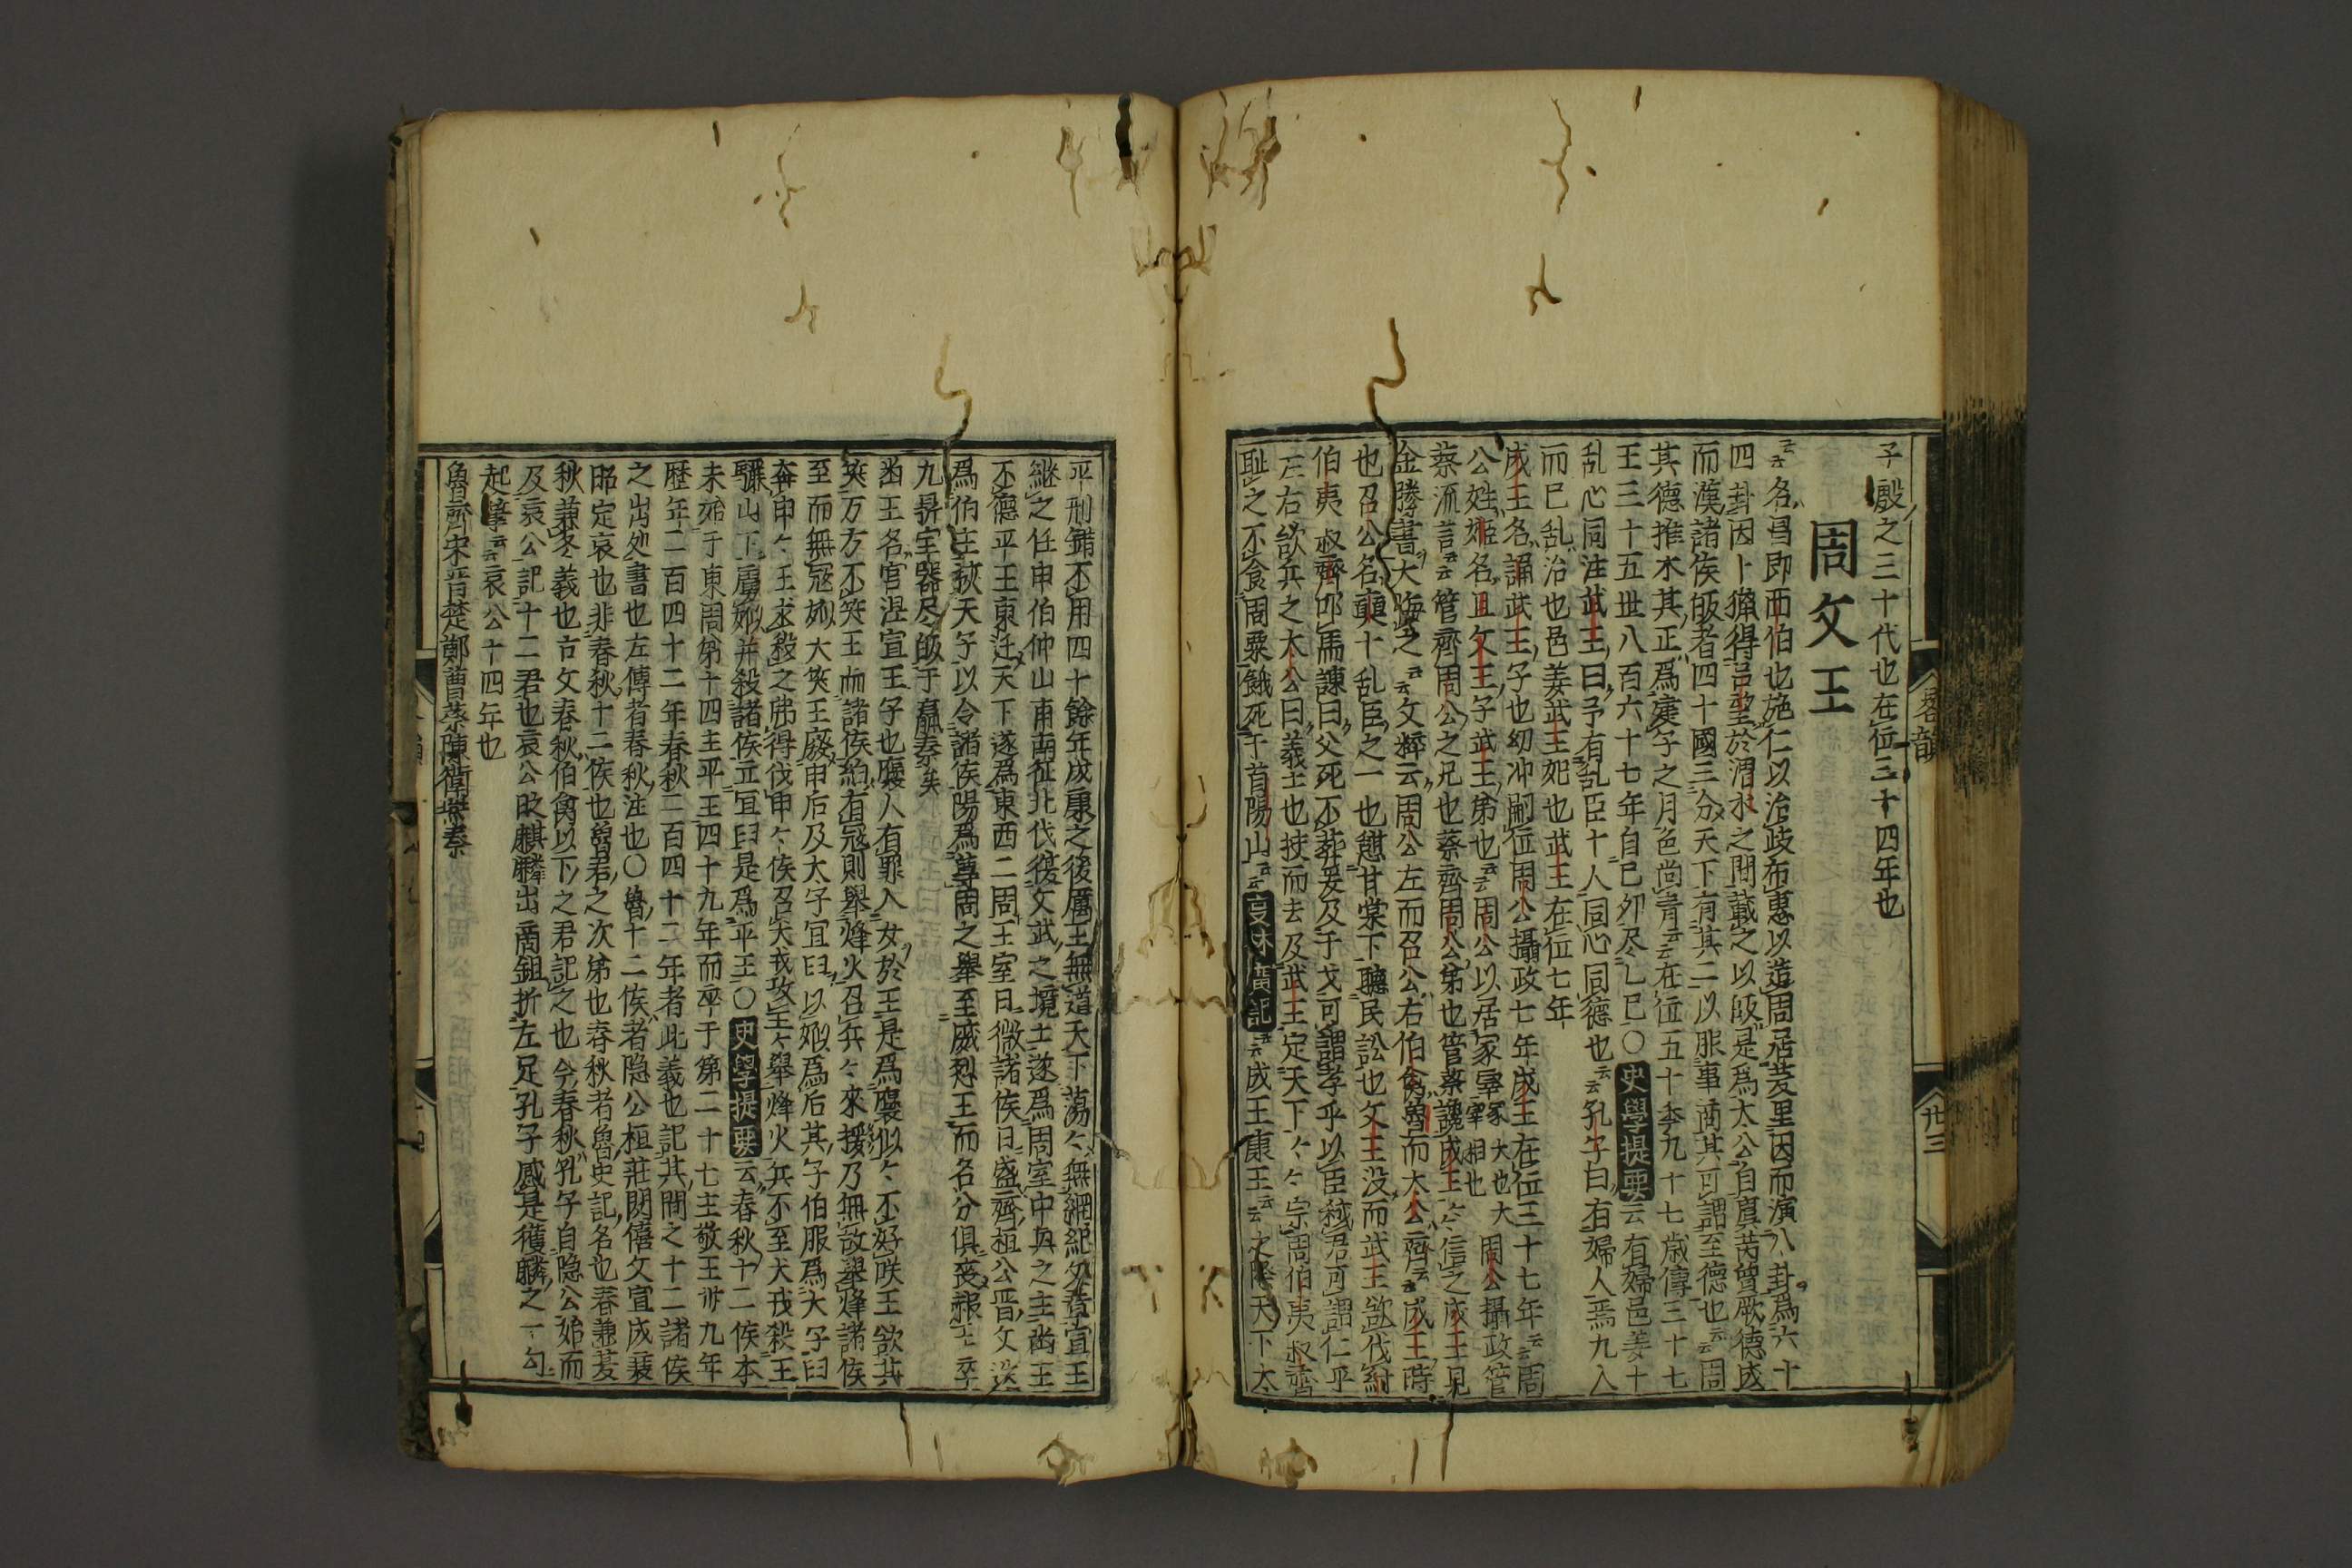 子殷之三十代也在位三十四年也
周文王
云云名昌即西伯也施仁以治歧布惠以造周居羑里因而演八卦爲六十
四卦因卜獵得呂望於渭水之間載之以皈是爲太公自虞芮曾厥德成
而漢諸侯皈者四十國三分天下有其二以服事商其可謂至德也云云周
其德推木其正爲建子之月色尚青云云在位五十季九十七歳傳三十七
王三十五世八百六十七年自己卯尽乙巳〇史學提要云有婦邑姜十
乱心同注武王曰予有乱臣十人同心同德也云云孔子曰有婦人焉九人
而已乱治也邑姜武王妃也武王在位七年
成王名誦武王子也幼冲嗣位周公攝政七年成王在位三十七年云云周
公姓姬名旦文王子武王弟也云云周公以居冢宰冢大也大宰相也周公攝政管
蔡流言云云管齊周公之兄也蔡齊周公弟也管蔡讒成王々信之成王見
金滕書大悔之云云文粹云周公左而召公右伯禽魯而大公齊云云成王時
也召公名奭十乱臣之一也憇甘棠下聽民訟也文王没而武王欲伐紂
伯夷叔齊叩馬諌曰父死不葬爰及干戈可謂孝乎以臣弑君可謂仁乎
左右欲兵之太公曰義士也扶而去及武王定天下々々宗周伯夷叔齊
耻之不食周粟餓死于首陽山云云夏林廣記云云成王康王云云之際天下太
平刑錯不用四十餘年成康之後厲王無道天下蕩々無綱紀矣晋宣王
継之任申伯仲山甫南征北伐復文武之境土遂爲周室中興之主幽王
不德平王東迁天下遂爲東西二周王室日微諸侯日盛齊桓公晋文迭
爲伯主挾天子以令諸侯陽爲尊周之舉至威烈王而名分俱喪赧王卒
九鼎宝器尽皈于嬴秦矣
幽王名宮涅宣王子也襃人有罪入女於王是爲襃似々不好咲王欲其
笑万方不笑王與諸侯約有冦則舉烽火召兵々來援乃無故舉烽諸侯
至而無冦姒大笑王廢申后及太子宜臼以姒爲后其子伯服爲大子臼
奔申々王求殺之弗得伐申々侯召犬戎攻王々舉烽火兵不至犬戎殺王
驪山下虜姒并殺諸侯立宜臼是爲平王〇史學提要云春秋十二侯本
末始于東周第十四主平王四十九年而卒于第二十七主敬王卅九年
歴年二百四十二年春秋二百四十二年者此義也記其間之十二諸侯
之出処書也左傳者春秋注也〇魯十二侯者隐公桓莊閔僖文宣成襄
昭定哀也非春秋十二侯也魯君之次第也春秋者魯史記名也春兼夏
秋兼冬義也古文春秋伯禽以下之君記之也今春秋孔子自隐公始而
及哀公記十二君也哀公時麒麟出鉏商折左足孔子感是獲麟之一句
起筆云云哀公十四年也
魯齊宋晋楚鄭曹蔡陳衛燕秦